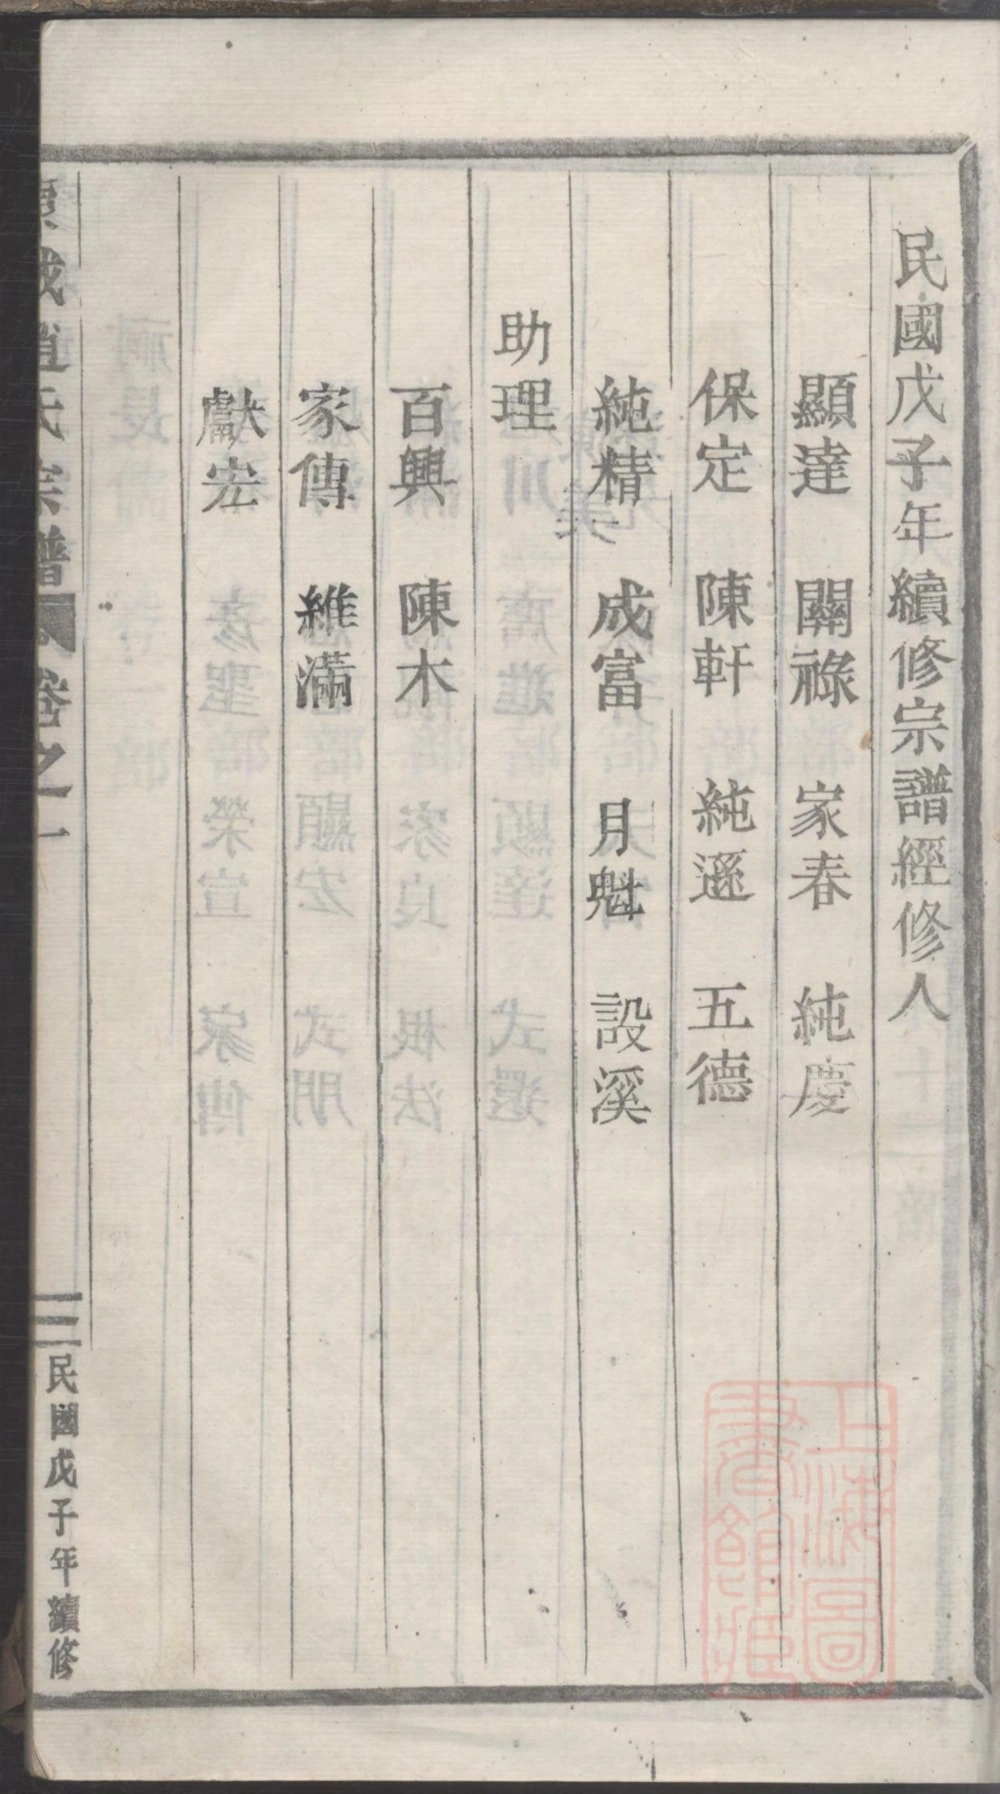 民國戊子年續修宗譜經修人
顯達 關祿 家春 純慶
保定 陳軒 純遜 五德
純精 成富 月魁 設溪
助理
百興 陳木
家傳 維滿
獻宏
趙氏宗譜 卷之一
三 民國戊子年續修
上海圖書館藏